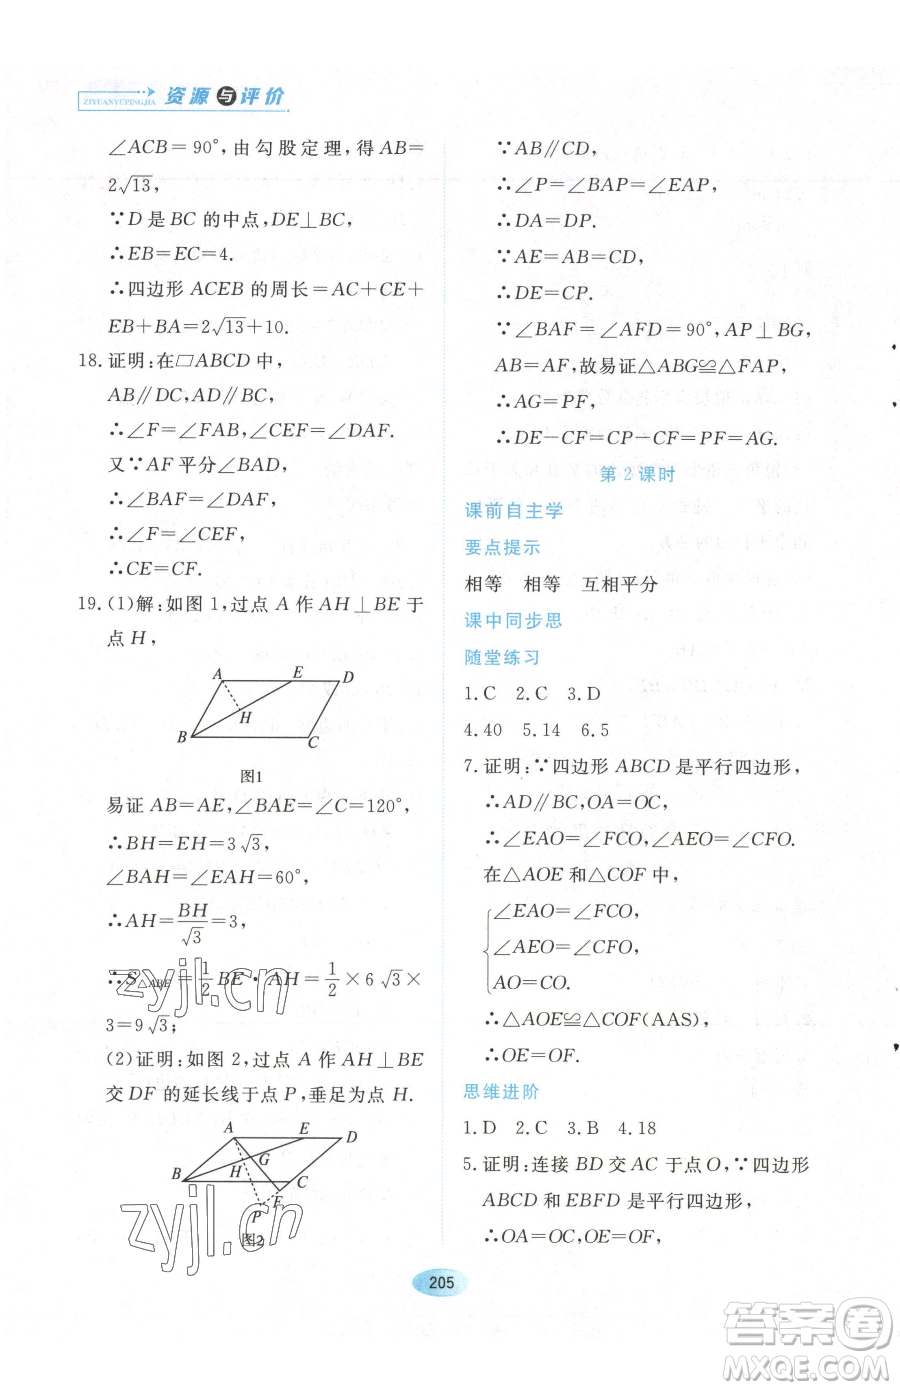 资源与评价
ZIYUANYUPINGJIA
∠ACB=90°,由勾股定理,得AB=
2√13,
∵D是BC的中点,DE⊥BC,
∴EB=EC=4.
∴四边形ACEB的周长=AC+CE+
EB+BA=2√13+10.
18.证明:在□ABCD中,
AB∥DC,AD∥BC,
∴∠F=∠FAB,∠CEF=∠DAF.
又∵AF平分∠BAD,
∴∠BAF=∠DAF,
∴∠F=∠CEF,
∴CE=CF.
19.(1)解:如图1,过点A作AH⊥BE于
点H,
A E D
H
B C
图1
易证AB=AE,∠BAE=∠C=120°,
∴BH=EH=3√3,
∠BAH=∠EAH=60°,
∴AH=BH/√3=3,
∴S△ABE=1/2BE·AH=1/2×6√3×
3=9√3;
(2)证明:如图2,过点A作AH⊥BE
交DF的延长线于点P,垂足为点H.
A E D
G
B H C
F
P
图2
∵AB∥CD,
∴∠P=∠BAP=∠EAP,
∴DA=DP.
∵AE=AB=CD,
∴DE=CP.
∵∠BAF=∠AFD=90°,AP⊥BG,
AB=AF,故易证△ABG≌△FAP,
∴AG=PF,
∴DE-CF=CP-CF=PF=AG.
第2课时
课前自主学
要点提示
相等 相等 互相平分
课中同步思
随堂练习
1.C 2.C 3.D
4.40 5.14 6.5
7.证明:∵四边形ABCD是平行四边形,
∴AD∥BC,OA=OC,
∴∠EAO=∠FCO,∠AEO=∠CFO.
在△AOE和△COF中,
∠EAO=∠FCO,
∠AEO=∠CFO,
AO=CO.
∴△AOE≌△COF(AAS),
∴OE=OF.
思维进阶
1.D 2.C 3.B 4.18
5.证明:连接BD交AC于点O,∵四边形
ABCD和EBFD是平行四边形,
∴OA=OC,OE=OF,
205
zyjl.cn
zyjl.cn
答案圈
MXQE.COM